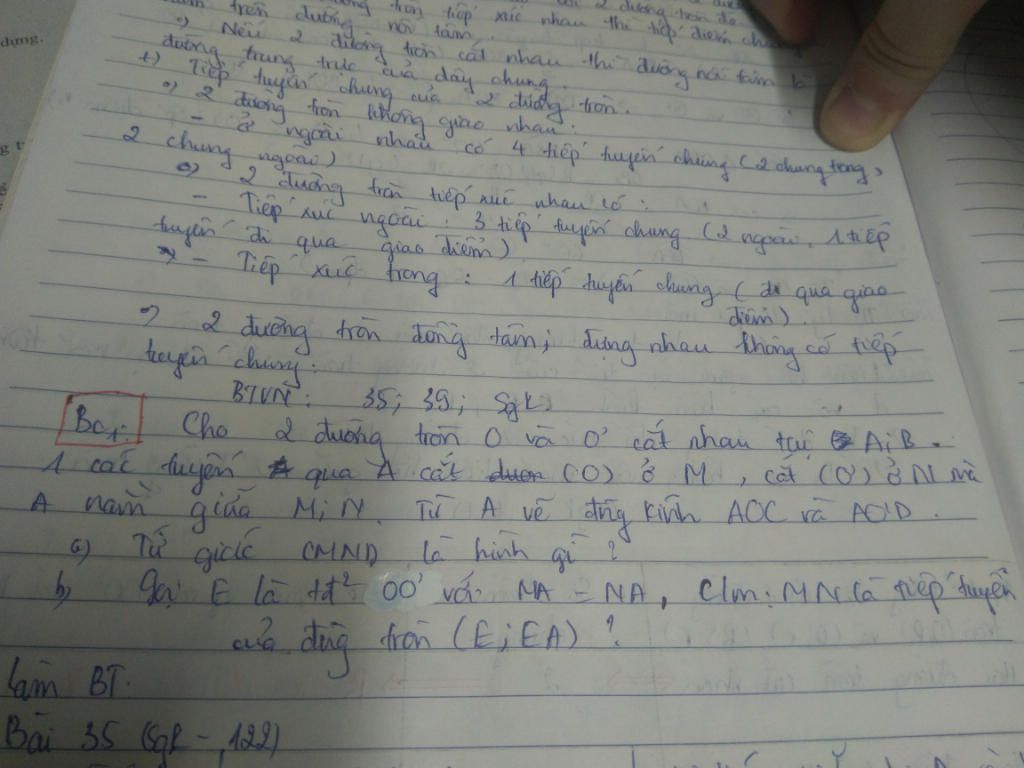 trên đường nối tâm.
Nếu 2 đường tròn cắt nhau thì đường nối tâm là
đường trung trực của dây chung.
+) Tiếp tuyến chung của 2 đường tròn.
2 đường tròn không giao nhau:
- ở ngoài nhau có 4 tiếp tuyến chung (2 chung trong,
2 chung ngoài)
2 đường tròn tiếp xúc nhau có:
- Tiếp xúc ngoài: 3 tiếp tuyến chung (2 ngoài, 1 tiếp
tuyến đi qua giao điểm)
- Tiếp xúc trong: 1 tiếp tuyến chung (đi qua giao
điểm).
2 đường tròn đồng tâm; đựng nhau không có tiếp
tuyến chung.
BTVN: 35; 39; Sgk
Cho 2 đường tròn O và O' cắt nhau tại A; B.
1 các tuyến qua A cắt (O) ở M, cắt (O') ở N mà
A nằm giữa M; N. Từ A vẽ đng kính AOC và AO'D.
a) Tứ giác CMND là hình gì?
b) Gọi E là tđ² OO' với MA = NA, C/m: MN là tiếp tuyến
của đng tròn (E; EA)?
Làm BT.
Bài 35 (Sgk - 122)
dụng.